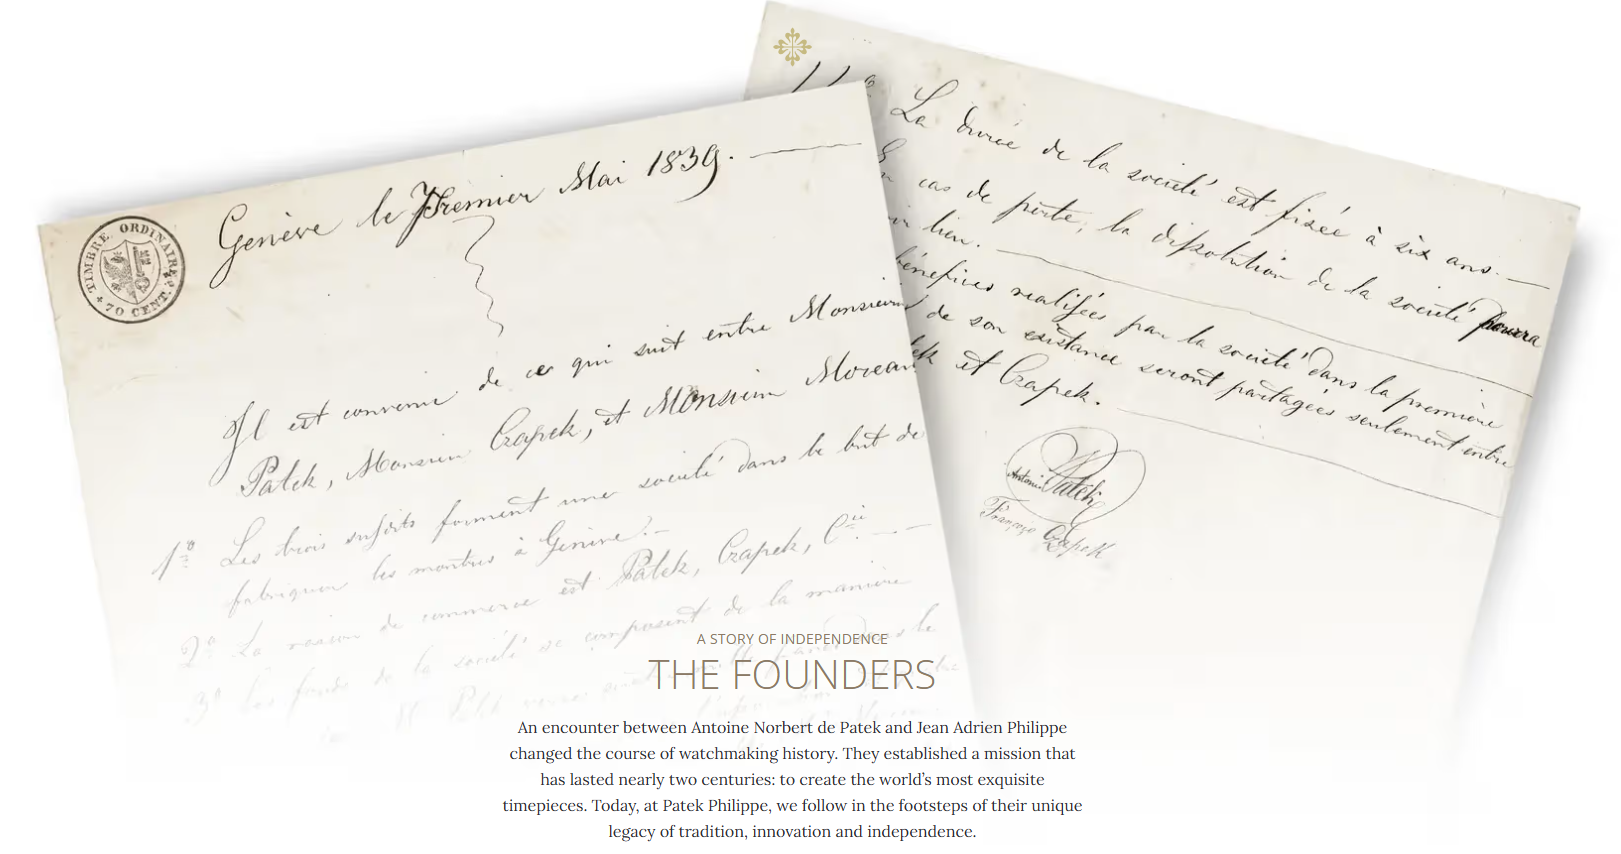 TIMBRE ORDINAIRE
70 CENT.
Genève le Premier Mai 1839.
Il est convenu de ce qui suit entre Monsieur
Patek, Monsieur Czapek, et Monsieur Moreau
1º Les trois susdits forment une société dans le but de
fabriquer les montres à Genève.
2º La raison de commerce est Patek, Czapek, Cie
3º Les fonds de la société se composent de la manière
La durée de la société est fixée à six ans.
cas de perte, la dissolution de la société pourra
lieu.
bénéfices realisées par la société dans la première
de son existance seront partagées seulement entre
et Czapek.
Antoni Patek
François Czapek
A STORY OF INDEPENDENCE
THE FOUNDERS
An encounter between Antoine Norbert de Patek and Jean Adrien Philippe
changed the course of watchmaking history. They established a mission that
has lasted nearly two centuries: to create the world’s most exquisite
timepieces. Today, at Patek Philippe, we follow in the footsteps of their unique
legacy of tradition, innovation and independence.